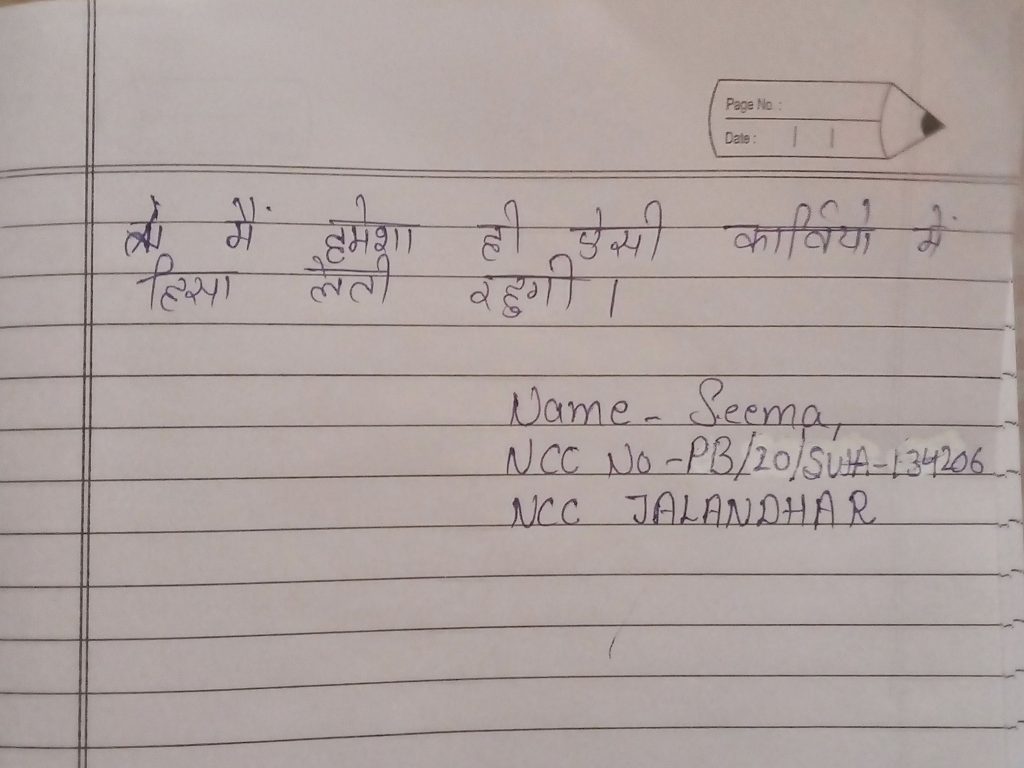 Page No :
Date :
मैं हमेशा ही ऐसी कार्वियो में
हिसा लेती रहुगी ।
Name - Seema,
NCC No - PB/20/SWA-134206
NCC JALANDHAR